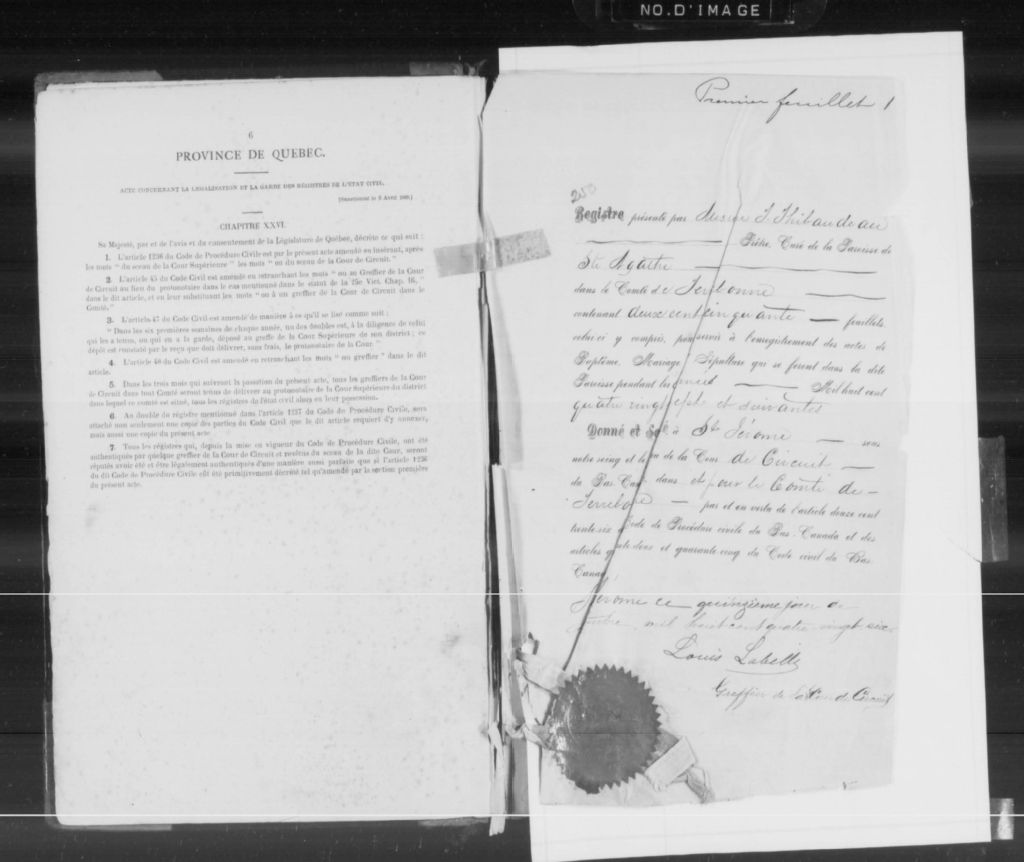 NO. D'IMAGE
6
PROVINCE DE QUEBEC.
ACTE CONCERNANT LA LEGALISATION ET LA GARDE DES RÉGISTRES DE L'ETAT CIVIL.
[Sanctionné le 5 Avril 1869.]
CHAPITRE XXVI.
Sa Majesté, par et de l'avis et du consentement de la Législature de Québec, décrète ce qui suit :
1. L'article 1236 du Code de Procédure Civile est par le présent acte amendé en insérant, après
les mots " du sceau de la Cour Supérieure " les mots " ou du sceau de la Cour de Circuit."
2. L'article 45 du Code Civil est amendé en retranchant les mots " ou au Greffier de la Cour
de Circuit au lieu du protonotaire dans le cas mentionné dans le statut de la 25e Vict. Chap. 16,
dans le dit article, et en leur substituant les mots " ou à un greffier de la Cour de Circuit dans le
Comté."
3. L'article 47 du Code Civil est amendé de manière à ce qu'il se lise comme suit :
" Dans les six premières semaines de chaque année, un des doubles est, à la diligence de celui
qui les a tenus, ou qui en a la garde, déposé au greffe de la Cour Supérieure de son district ; ce
dépôt est constaté par le reçu que doit délivrer, sans frais, le protonotaire de la Cour."
4. L'article 48 du Code Civil est amendé en retranchant les mots " ou greffier " dans le dit
article.
5. Dans les trois mois qui suivront la passation du présent acte, tous les greffiers de la Cour
de Circuit dans tout Comté seront tenus de délivrer au protonotaire de la Cour Supérieure du district
dans lequel ce comté est situé, tous les régistres de l'état civil alors en leur possession.
6. Au double du régistre mentionné dans l'article 1237 du Code de Procédure Civile, sera
attaché non seulement une copie des parties du Code Civil que le dit article requiert d'y annexer,
mais aussi une copie du présent acte.
7. Tous les régistres qui, depuis la mise en vigueur du Code de Procédure Civile, ont été
authentiqués par quelque greffier de la Cour de Circuit et revêtus du sceau de la dite Cour, seront
réputés avoir été et être légalement authentiqués d'une manière aussi parfaite que si l'article 1236
du dit Code de Procédure Civile eût été primitivement décrété tel qu'amendé par la section première
du présent acte.
Premier feuillet 1
250
Registre présenté par J Thibaudeau
Prêtre, Curé de la Paroisse de
Ste Agathe
dans le Comté de Terrebonne
contenant deux cent cinquante feuillets,
celui-ci y compris, pour servir à l'enregistrement des actes de
Baptême, Mariage Sépulture qui se feront dans la dite
Paroisse pendant les Mil huit cent
quatre vingt sept et suivantes
Donné et Sc à St Jérôme sous
notre seing et le de la Cour de Circuit
du Bas-Can dans et pour le Comté de
Terrebonne par et en vertu de l'article douze cent
trente-six Code de Procédure civile du Bas-Canada et des
articles deux et quarante-cinq du Code civil du Bas-
Canad
Jérôme ce quinzième jour de
mil huit cent quatre vingt six
Louis Labelle
Greffier de la Cour de Circuit